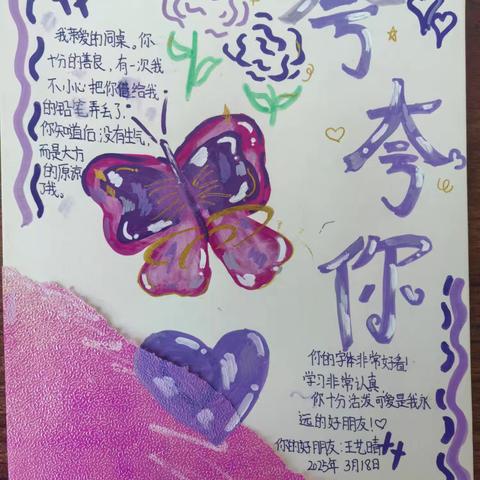 夸
夸
你
我亲爱的同桌。你
十分的善良，有一次我
不小心把你借给我
的铅笔弄丢了.
你知道后没有生气，
而是大方
的原谅
了我。
你的字体非常好看!
学习非常认真,
你十分活泼可爱是我永
远的好朋友!♡
你的好朋友:王艺晴
2025年 3月18日